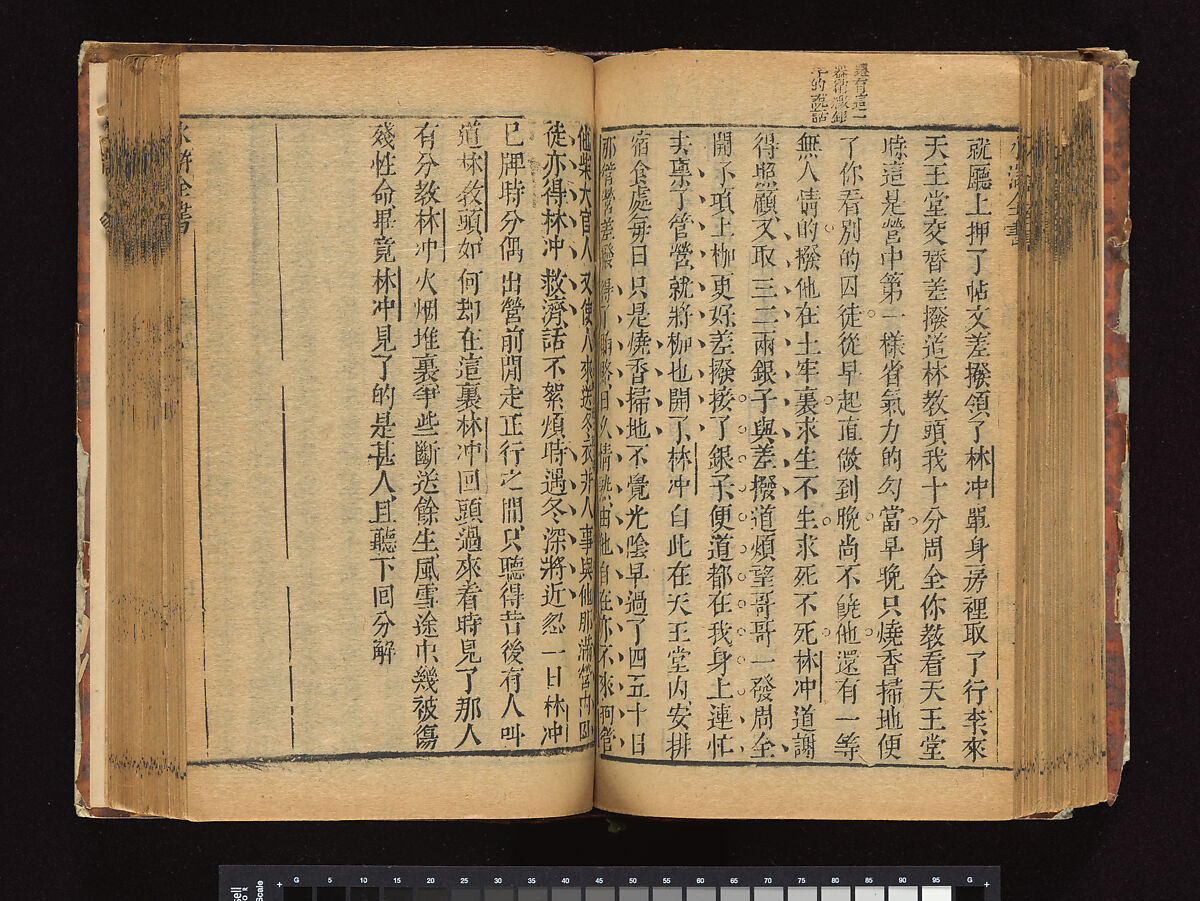 還有這二
三兩銀
子的說話
就廳上押了帖文差撥領了林冲單身房裡取了行李來
天王堂交替差撥道林教頭我十分周全你教看天王堂
時這是營中第一樣省氣力的勾當早晚只燒香掃地便
了你看別的囚徒從早起直做到晚尚不饒他還有一等
無人情的撥他在土牢裏求生不生求死不死林冲道謝
得照顧又取三二兩銀子與差撥道煩望哥哥一發周全
開了項上枷更好差撥接了銀子便道都在我身上連忙
去稟了管營就將枷也開了林冲自此在天王堂內安排
宿食處每日只是燒香掃地不覺光陰早過了四五十日
那管營差撥得了賄賂日久情熟由他自在亦不來拘管
他柴大官人又使人來送冬衣并人事與他那滿營內囚
徒亦得林冲救濟話不絮煩時遇冬深將近忽一日林冲
巳牌時分偶出營前閒走正行之間只聽得背後有人叫
道林教頭如何却在這裏林冲回頭過來看時見了那人
有分教林冲火烟堆裏爭些斷送餘生風雪途中幾被傷
殘性命畢竟林冲見了的是甚人且聽下回分解
水滸全書